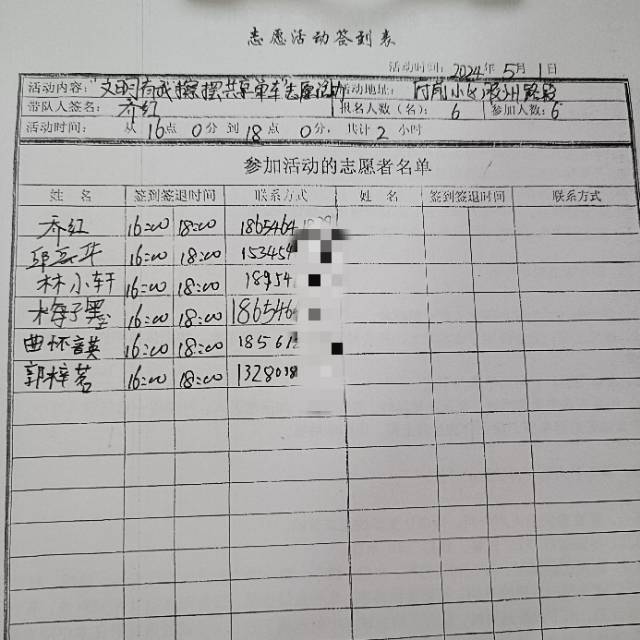 志愿活动签到表
活动时间: 2024年5月1日
活动内容: "文明有我 擦摆共享单车"志愿活动 活动地址: 小区 路段
带队人签名: 乔红 报名人数(名): 6 参加人数: 6
活动时间: 从16点0分到18点0分, 共计2小时
参加活动的志愿者名单
姓 名 签到签退时间 联系方式 姓 名 签到签退时间 联系方式
乔红 16:00 18:00 1865464
16:00 18:00 153454
林小轩 16:00 18:00 18954
梅子墨 16:00 18:00 1865464
曲怀 16:00 18:00 18561
郭梓茗 16:00 18:00 1328038